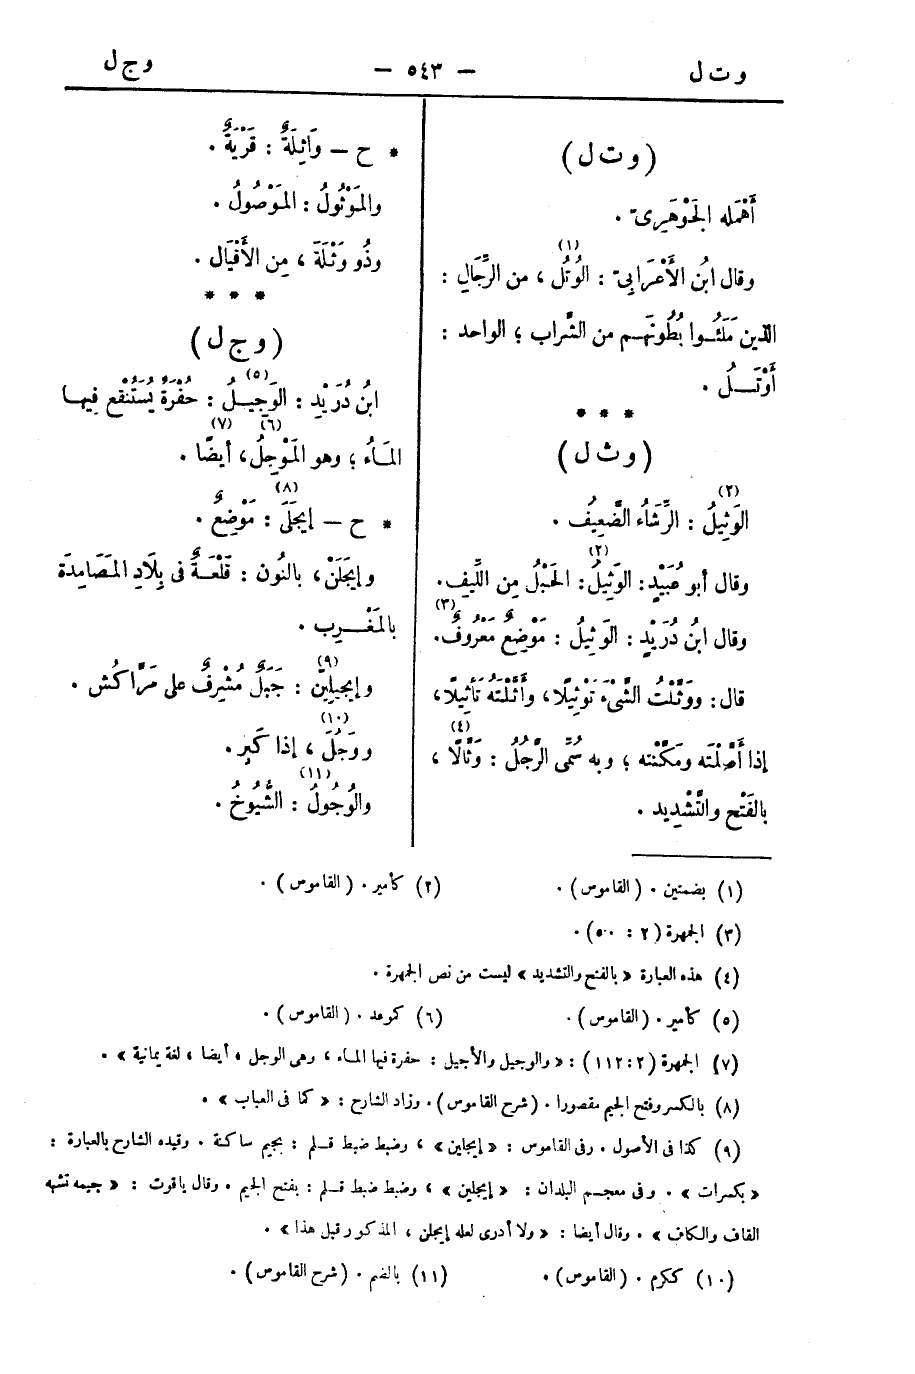 وت ل — ٥٤٣ — وج ل
(وت ل)
أَهْمَله الجَوْهَرِىّ .
وقال ابنُ الأَعْرَابِىّ : الوُتُلُ (١) ، من الرِّجَالِ :
الذين مَلَئُوا بُطُونَهم من الشَّراب ؛ الواحد :
أَوْتَـــلُ .
* * *
(وث ل)
الوَثِيلُ (٢) : الرِّشَاءُ الضَّعِيفُ .
وقال أبو عُبَيْدٍ : الوَثِيلُ (٢) : الحَبْلُ مِن اللِّيفِ .
وقال ابنُ دُرَيْدٍ : الوَثِيلُ : مَوْضِعٌ مَعْرُوفٌ (٣) .
قال : ووَثَّلْتُ الشَّىْءَ تَوْثِيلًا ، وأَثَّلْتُه تَأْثِيلًا ،
إذا أَصَّلْتَه ومَكَّنْتَه ؛ وبه سُمِّىَ الرَّجُلُ : وَثَّالًا (٤) ،
بالفَتْح والتَّشْديد .
* ح – وَاثِلَةُ : قَرْيَةٌ .
والمَوْثُولُ : المَوْصُولُ .
وذُو وَثْلَةَ ، مِن الأَقْيَال .
* * *
(وج ل)
ابنُ دُرَيْدٍ : الوَجِيــلُ (٥) : حُفْرَةٌ يَسْتَنْقِع فِيهـا
المَــاءُ ؛ وهو المَوْجِلُ (٦) ، أيضًا (٧) .
* ح – إيجَلَى (٨) : مَوْضِعٌ .
وإيجَلَنْ ، بالنُون : قَلْعَــةٌ فى بِلَادِ المَصَامِدَة
بالمَغْــرِب .
وإيجِيلِينَ (٩) : جَبَلٌ مُشْرِفٌ على مَرَّاكُش .
ووَجُلَ (١٠) ، إذا كَبِرَ .
والوُجُولُ (١١) : الشُّيُوخُ .
(١) بضمتين . (القاموس) . (٢) كأمير . (القاموس) .
(٣) الجمهرة (٢ : ٥٠) .
(٤) هذه العبارة « بالفتح والتشديد » ليست من نص الجمهرة .
(٥) كأمير . (القاموس) . (٦) كموعد . (القاموس) .
(٧) الجمهرة (٢ : ١١٢) : « والوجيل والأجيل : حفرة فيها المـاء ، وهى الوجل ، أيضا ، لغة يمانية » .
(٨) بالكسر وفتح الجيم مقصورا . (شرح القاموس) . وزاد الشارح : « كما فى العباب » .
(٩) كذا فى الأصول . وفى القاموس : « إيجلين » ، وضبط ضبط قــلم : بجيم ساكنة . وقيده الشارح بالعبارة :
« بكسرات » . وفى معجــم البلدان : « إيجلين » ، وضبط ضبط قــلم : بفتح الجيم . وقال ياقوت : « جيمه تشبه
القاف والكاف » . وقال أيضا : « ولا أدرى لعله إيجلن ، المذكور قبل هذا » .
(١٠) ككرم . (القاموس) . (١١) بالضم . (شرح القاموس) .